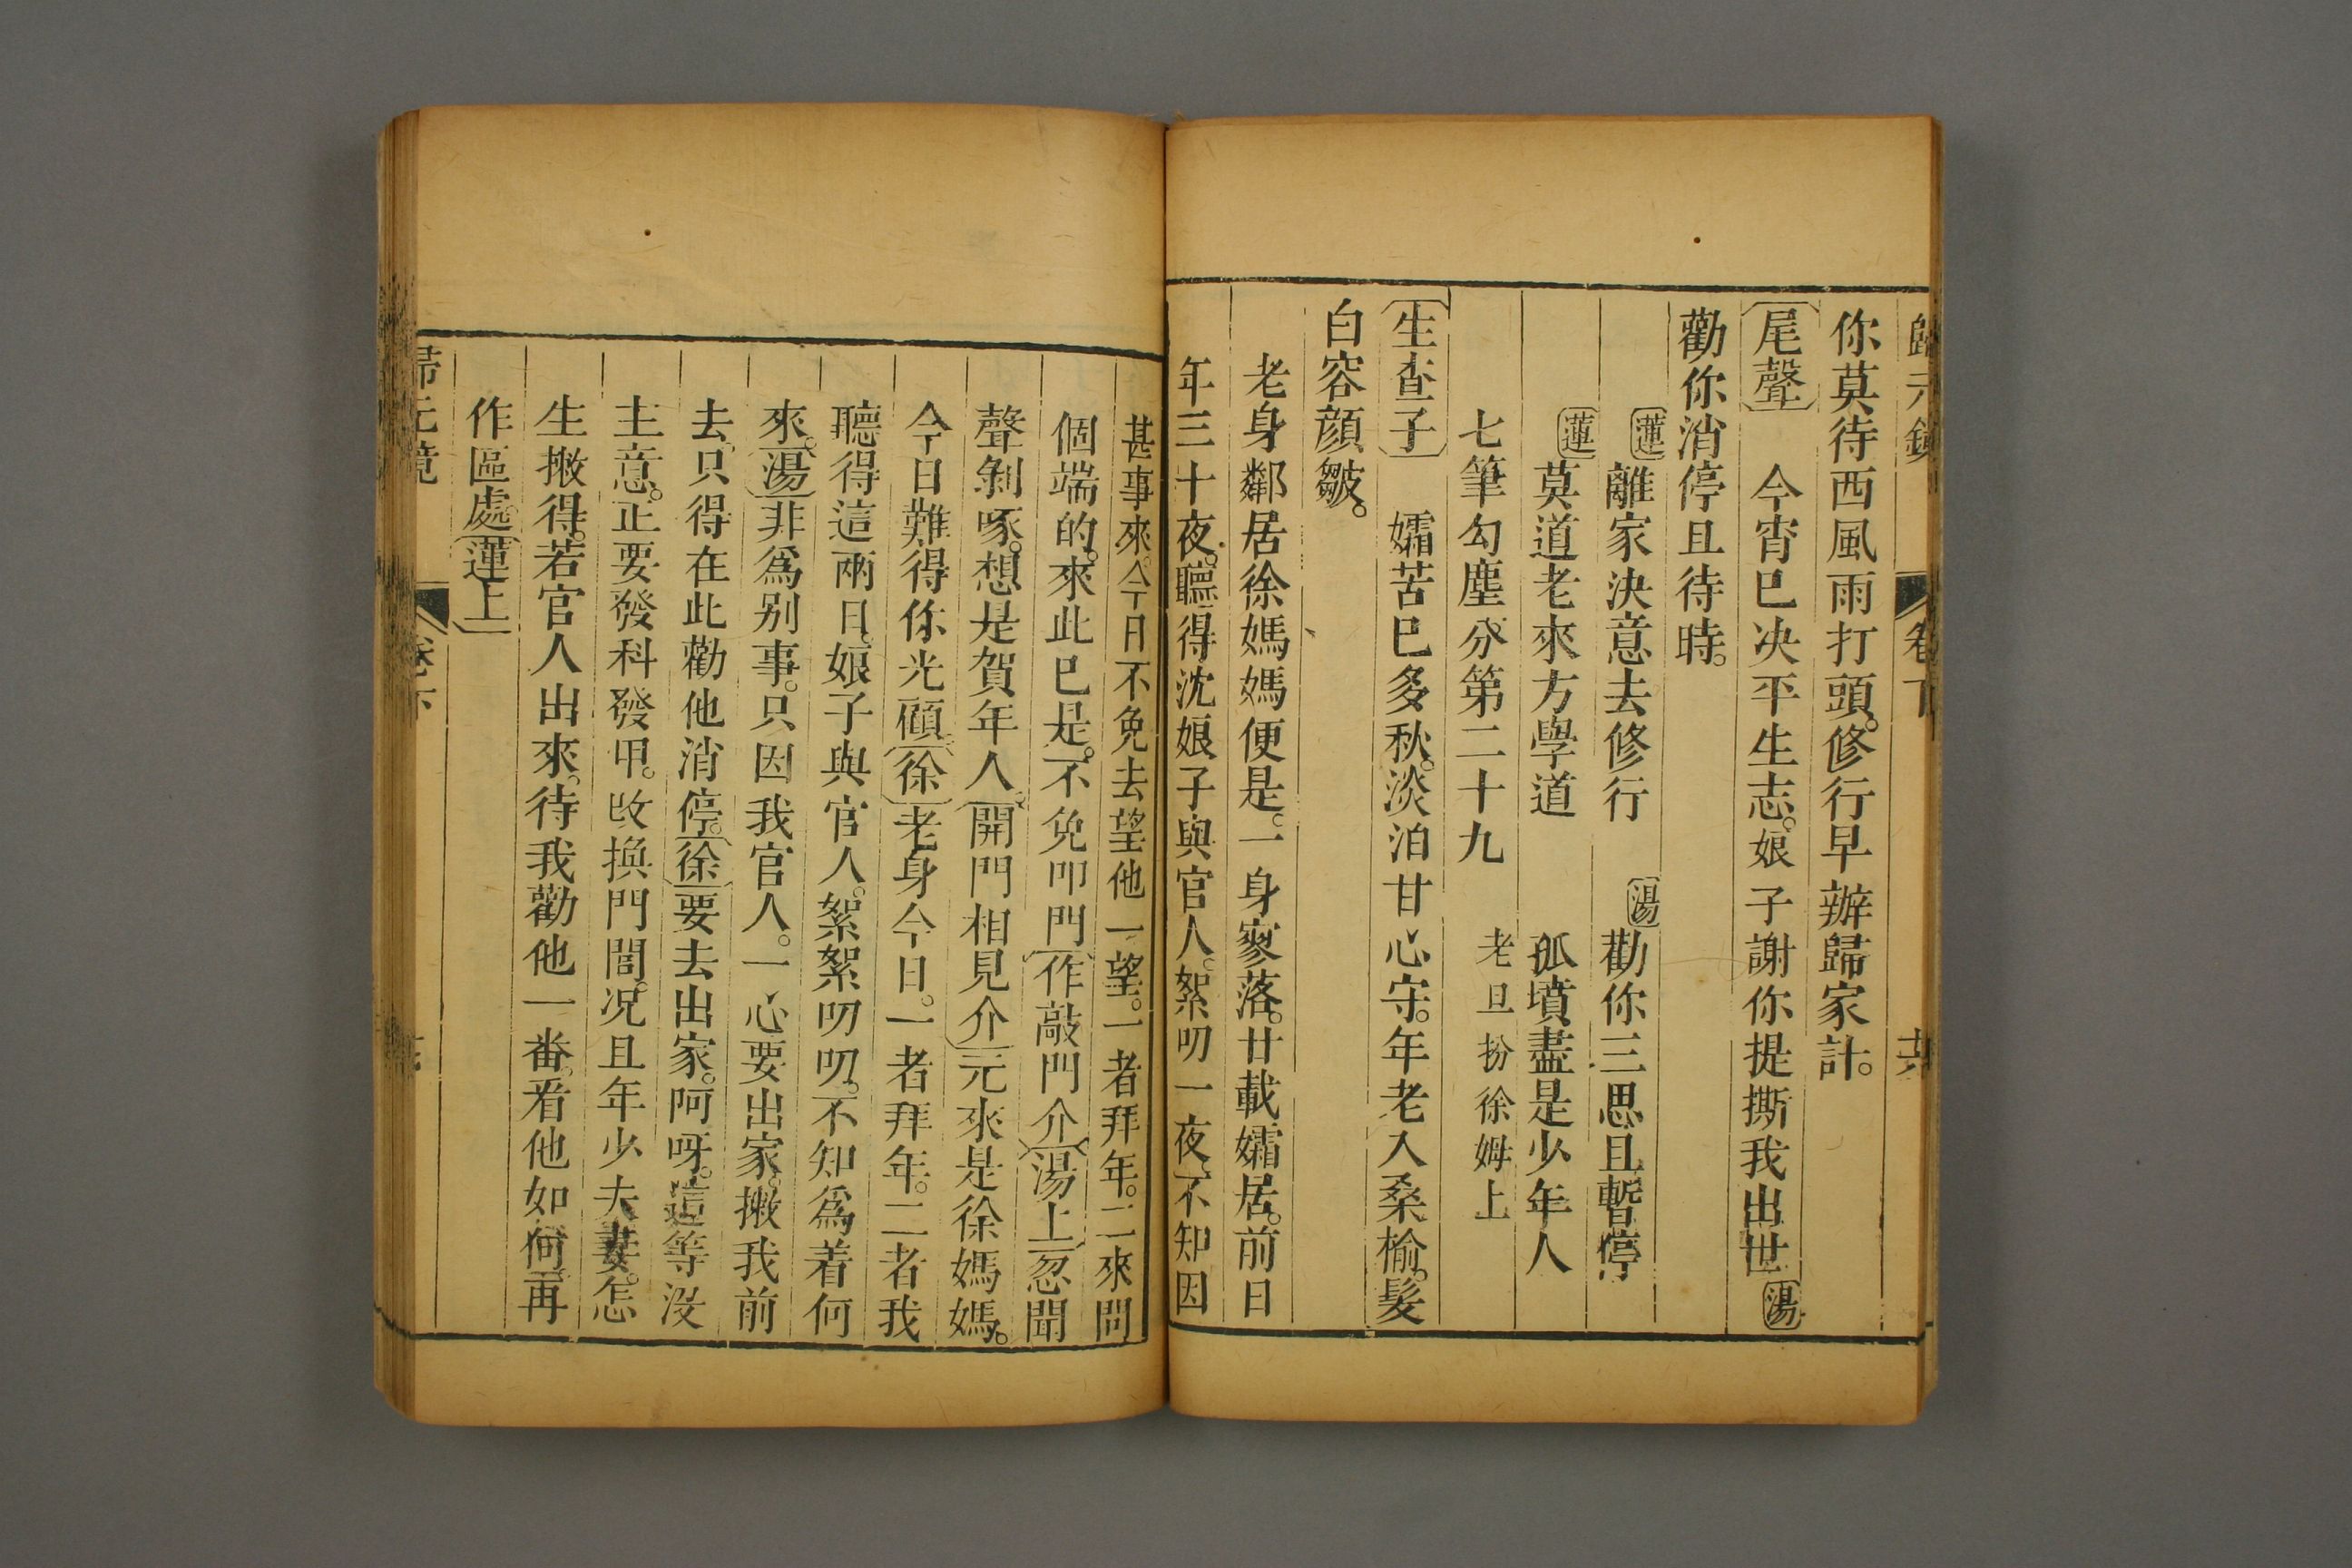 歸元鏡 卷下
你莫待西風雨打頭。修行早辦歸家計。
尾聲 今宵已决平生志。娘子謝你提撕我出世 湯
勸你消停且待時。
蓮 離家決意去修行 湯 勸你三思且暫停
蓮 莫道老來方學道 孤墳盡是少年人
七筆勾塵分第二十九 老旦扮徐姆上
生查子 孀苦已多秋。淡泊甘心守。年老入桑榆。髮
白容顔皺。
老身鄰居徐媽媽便是。一身寥落。廿載孀居。前日
年三十夜。聽得沈娘子與官人。絮叨一夜。不知因
甚事來。今日不免去望他一望。一者拜年。二來問
個端的。來此已是。不免叩門 作敲門介 湯上 忽聞
聲剝啄。想是賀年人 開門相見介 元來是徐媽媽。
今日難得你光顧 徐 老身今日。一者拜年。二者我
聽得這兩日。娘子與官人。絮絮叨叨。不知爲着何
來。湯 非爲别事。只因我官人。一心要出家。撇我前
去。只得在此勸他消停。徐 要去出家。阿呀。這等沒
主意。正要發科發甲。改換門閭。况且年少夫妻。怎
生撇得。若官人出來。待我勸他一番。看他如何。再
作區處。蓮上
歸元鏡 卷下